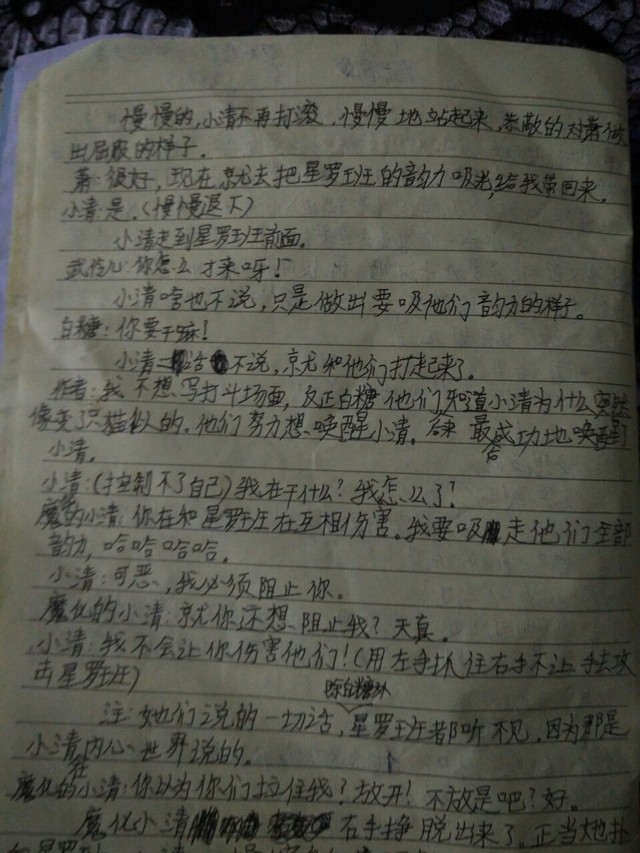 慢慢的,小清不再打滚,慢慢地站起来,恭敬的对萧做
出屈服的样子。
萧:很好,现在就去把星罗班的韵力吸光,给我带回来。
小清:是。(慢慢退下)
小清走到星罗班前面。
武崧儿:你怎么才来呀!
小清啥也不说,只是做出要吸他们韵力的样子。
白糖:你要干嘛!
小清一话不说,就和他们打起来了。
作者:我不想写打斗场面,反正白糖他们知道小清为什么突然
像变了只猫似的。他们努力想唤醒小清。后来最会成功地唤醒到
小清。
小清:(控制不了自己)我在干什么?我怎么了?
魔化的小清:你在和星罗班在互相伤害。我要吸走他们全部
韵力,哈哈哈哈。
小清:可恶,我必须阻止你。
魔化的小清:就你还想阻止我?天真。
小清:我不会让你伤害他们!(用左手抓住右手不让手去攻
击星罗班)
注:她们说的一切话,除白糖外星罗班都听不见,因为那是
小清内心世界说的。
魔化的小清:你以为你们拉住我?放开!不放是吧?好。
魔化小清右手挣脱出来了。正当她扑